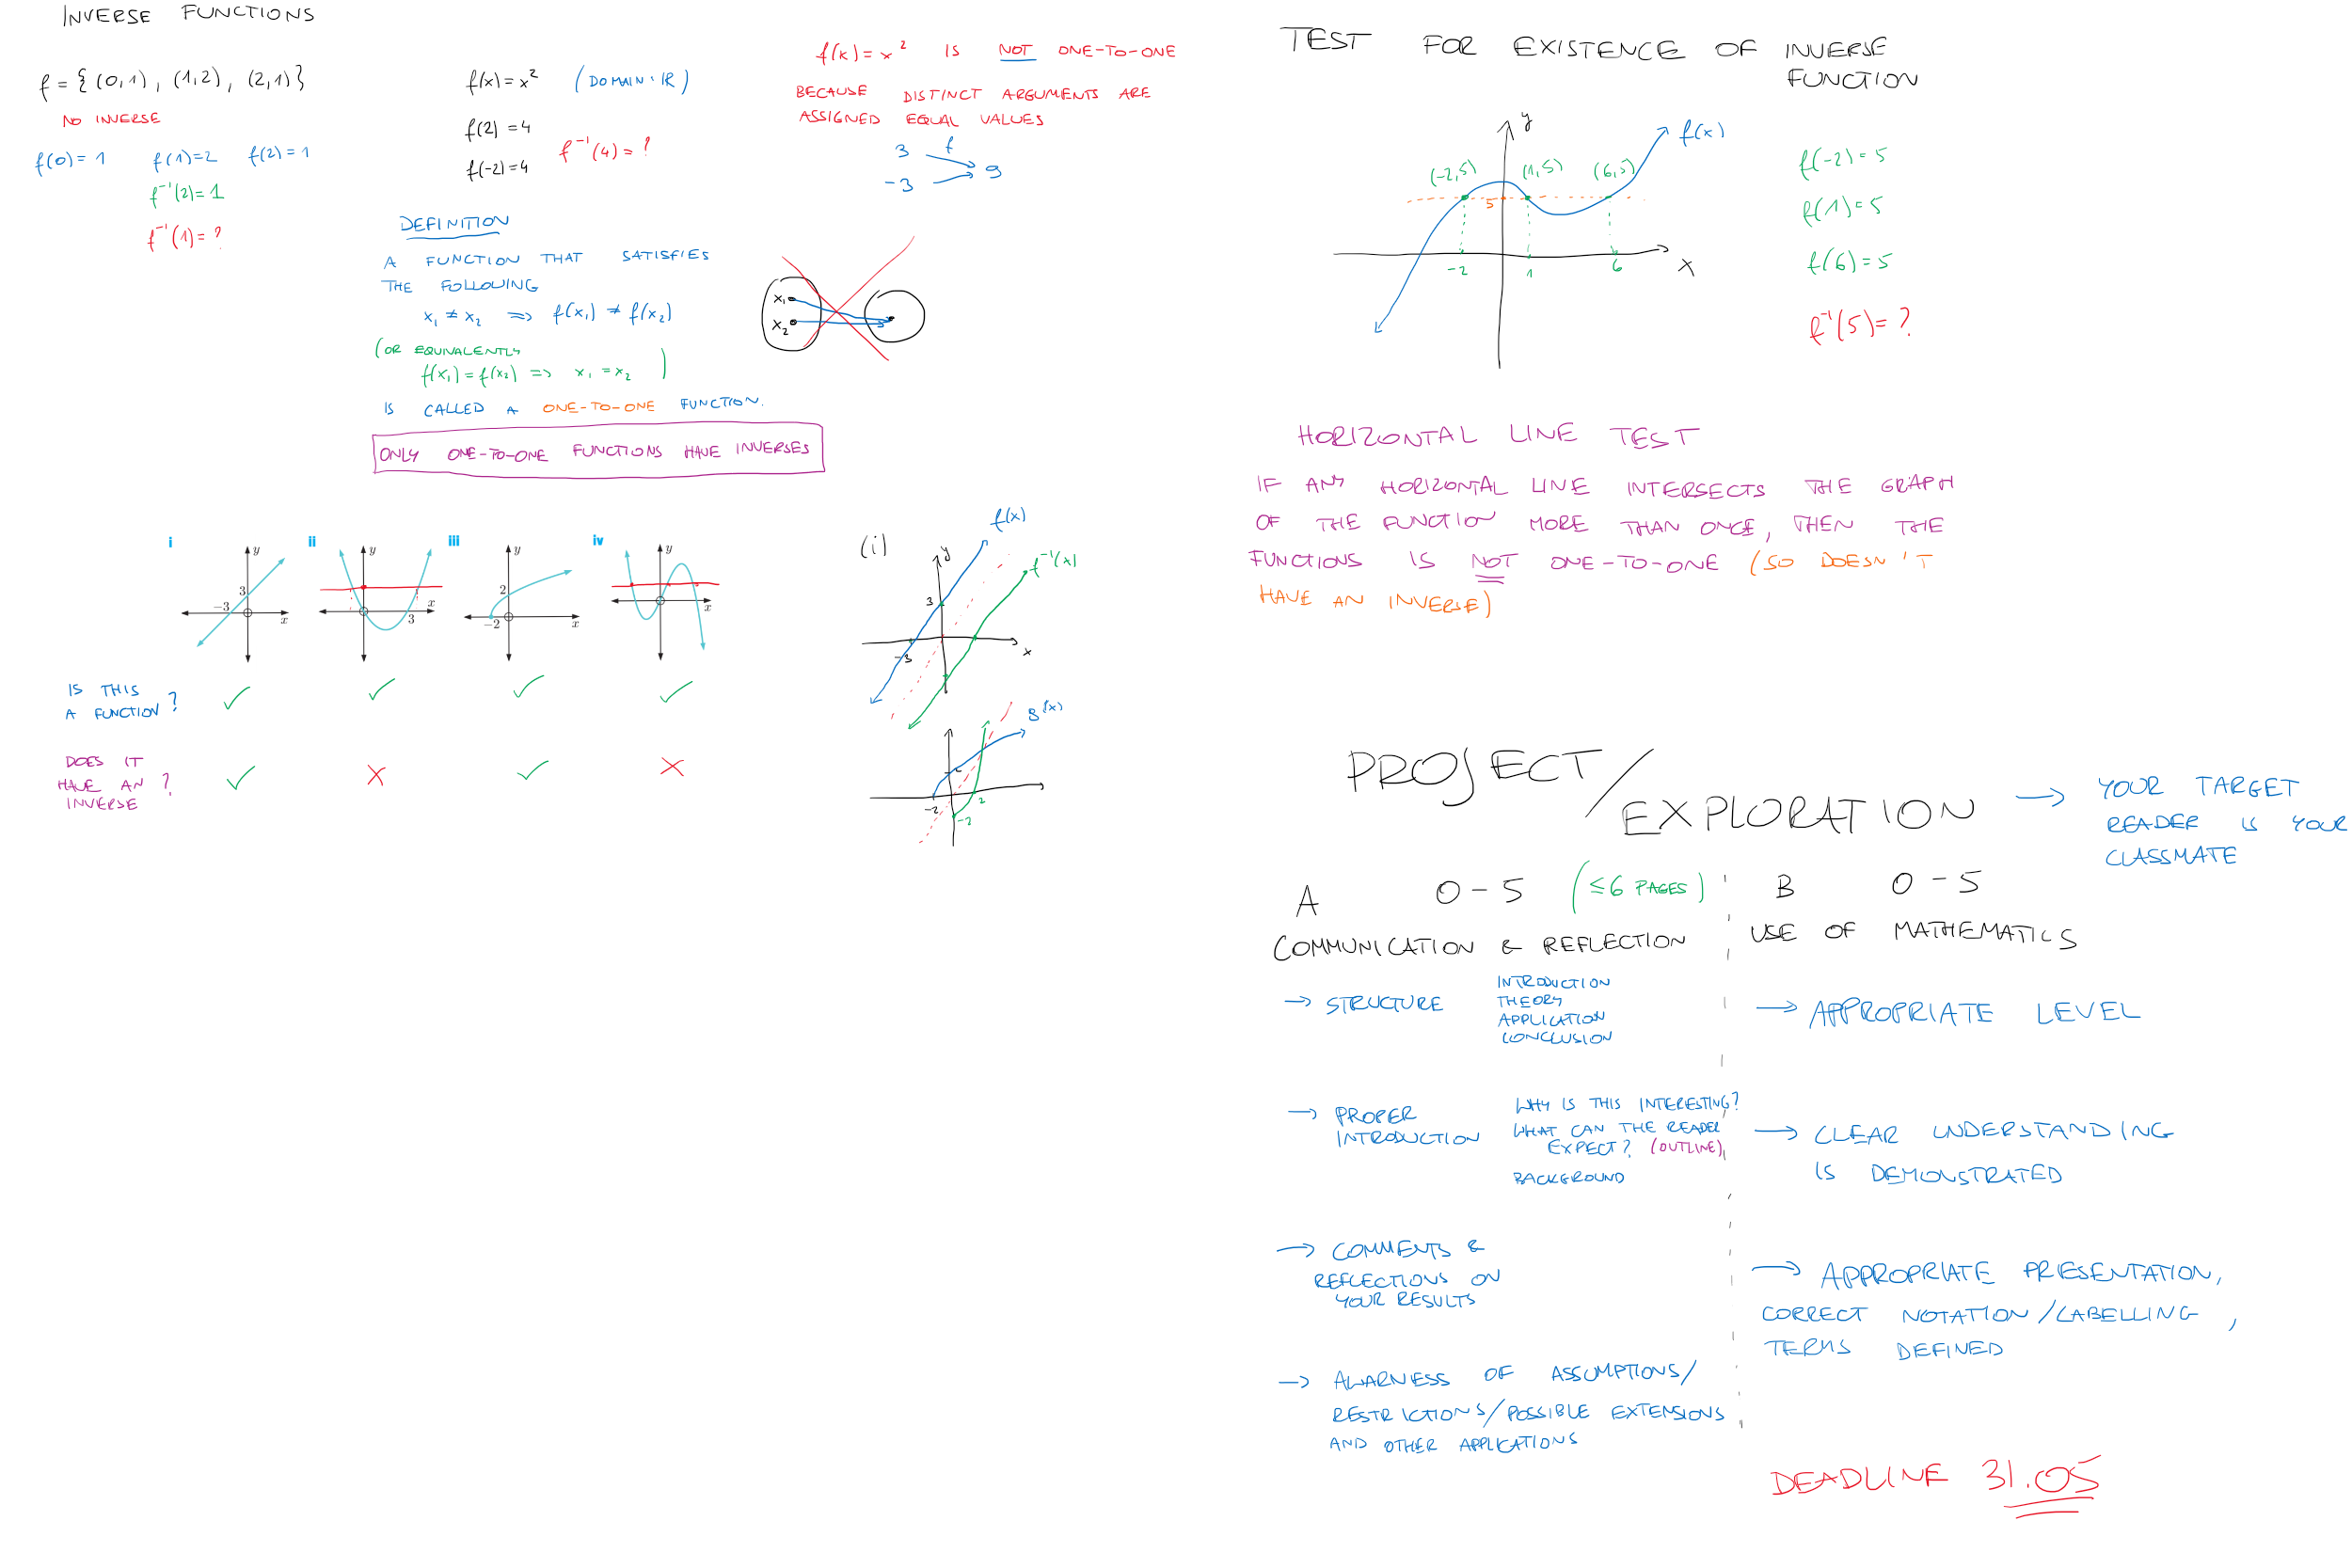 INVERSE FUNCTIONS
f = { (0,1) , (1,2) , (2,1) }
NO INVERSE
f(0) = 1 f(1) = 2 f(2) = 1
f⁻¹(2) = 1
f⁻¹(1) = ?
f(x) = x² (DOMAIN: ℝ)
f(2) = 4
f(-2) = 4
f⁻¹(4) = ?
f(x) = x² IS NOT ONE-TO-ONE
BECAUSE DISTINCT ARGUMENTS ARE
ASSIGNED EQUAL VALUES
3 f
-3 9
DEFINITION
A FUNCTION THAT SATISFIES
THE FOLLOWING
x₁ ≠ x₂ ⇒ f(x₁) ≠ f(x₂)
(OR EQUIVALENTLY
f(x₁) = f(x₂) ⇒ x₁ = x₂ )
IS CALLED A ONE-TO-ONE FUNCTION.
x₁
x₂
ONLY ONE-TO-ONE FUNCTIONS HAVE INVERSES
i y 3 -3 x
ii y x 3
iii y 2 -2 x
iv y x
IS THIS
A FUNCTION ?
✓ ✓ ✓ ✓
DOES IT
HAVE AN ?
INVERSE
✓ X ✓ X
(i) y f(x) f⁻¹(x)
3
-3 x
g(x)
2
-2 2
-2
TEST FOR EXISTENCE OF INVERSE
FUNCTION
y f(x)
(-2,5) (1,5) (6,5)
5
-2 1 6 x
f(-2) = 5
f(1) = 5
f(6) = 5
f⁻¹(5) = ?
HORIZONTAL LINE TEST
IF ANY HORIZONTAL LINE INTERSECTS THE GRAPH
OF THE FUNCTION MORE THAN ONCE, THEN THE
FUNCTIONS IS NOT ONE-TO-ONE (SO DOESN'T
HAVE AN INVERSE)
PROJECT/
EXPLORATION → YOUR TARGET
READER IS YOUR
CLASSMATE
A 0-5 (≤6 PAGES)
COMMUNICATION & REFLECTION
→ STRUCTURE
INTRODUCTION
THEORY
APPLICATION
CONCLUSION
→ PROPER
INTRODUCTION
WHY IS THIS INTERESTING?
WHAT CAN THE READER
EXPECT? (OUTLINE)
BACKGROUND
→ COMMENTS &
REFLECTIONS ON
YOUR RESULTS
→ AWARNESS OF ASSUMPTIONS/
RESTRICTIONS/POSSIBLE EXTENSIONS
AND OTHER APPLICATIONS
B 0-5
USE OF MATHEMATICS
→ APPROPRIATE LEVEL
→ CLEAR UNDERSTANDING
IS DEMONSTRATED
→ APPROPRIATE PRESENTATION,
CORRECT NOTATION/LABELLING,
TERMS DEFINED
DEADLINE 31.05